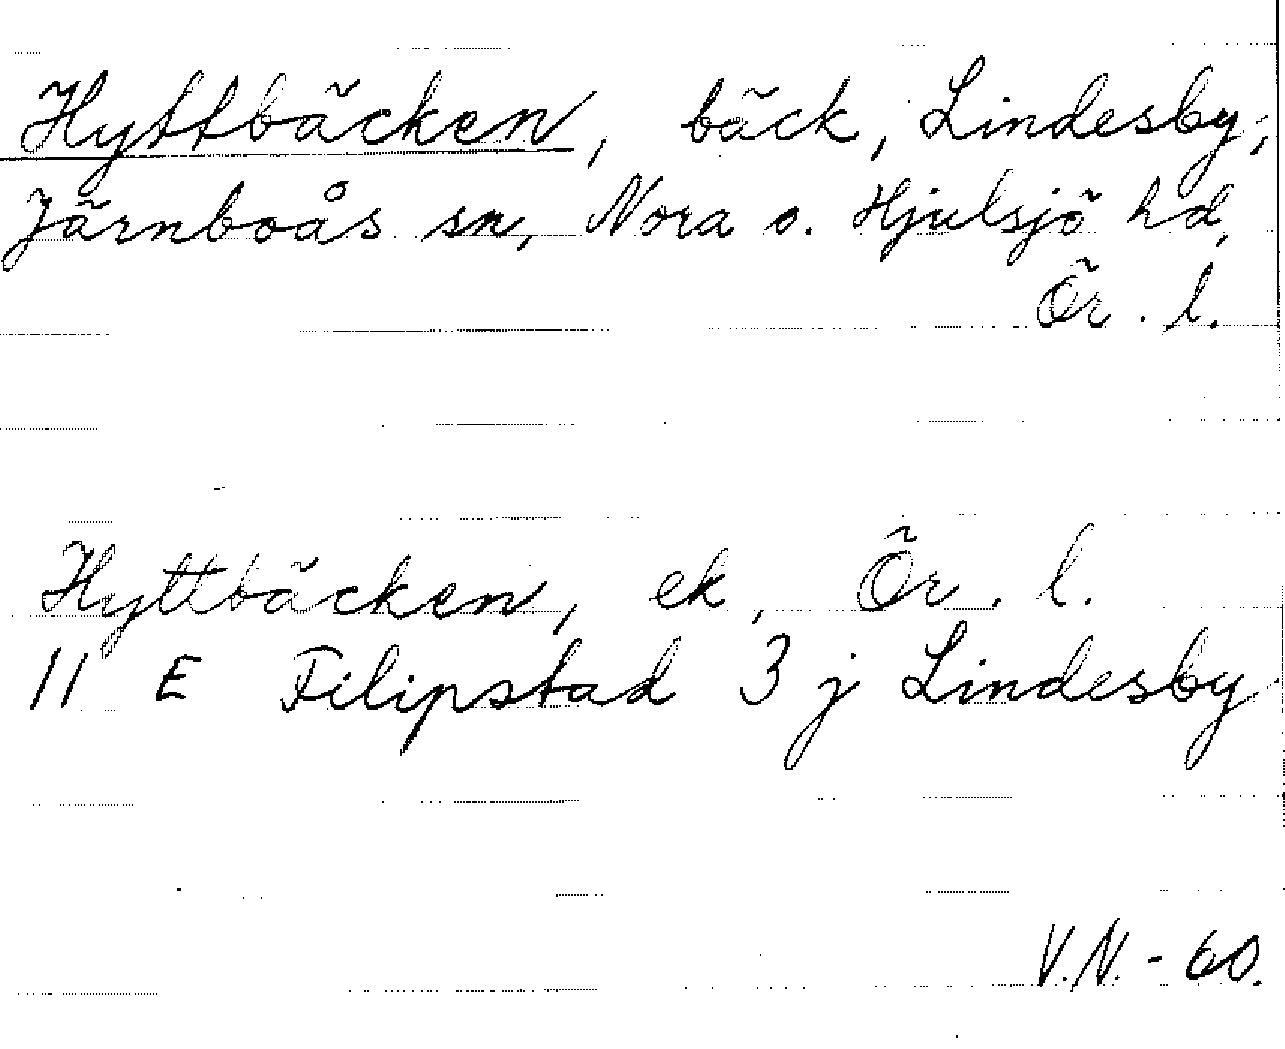 Hyttbäcken, bäck, Lindesby,
Järnboås sn, Nora o. Hjulsjö hd,
Ör. l.
Hyttbäcken, ek, Ör. l.
11 E Filipstad 3 j Lindesby
V.N. - 60.